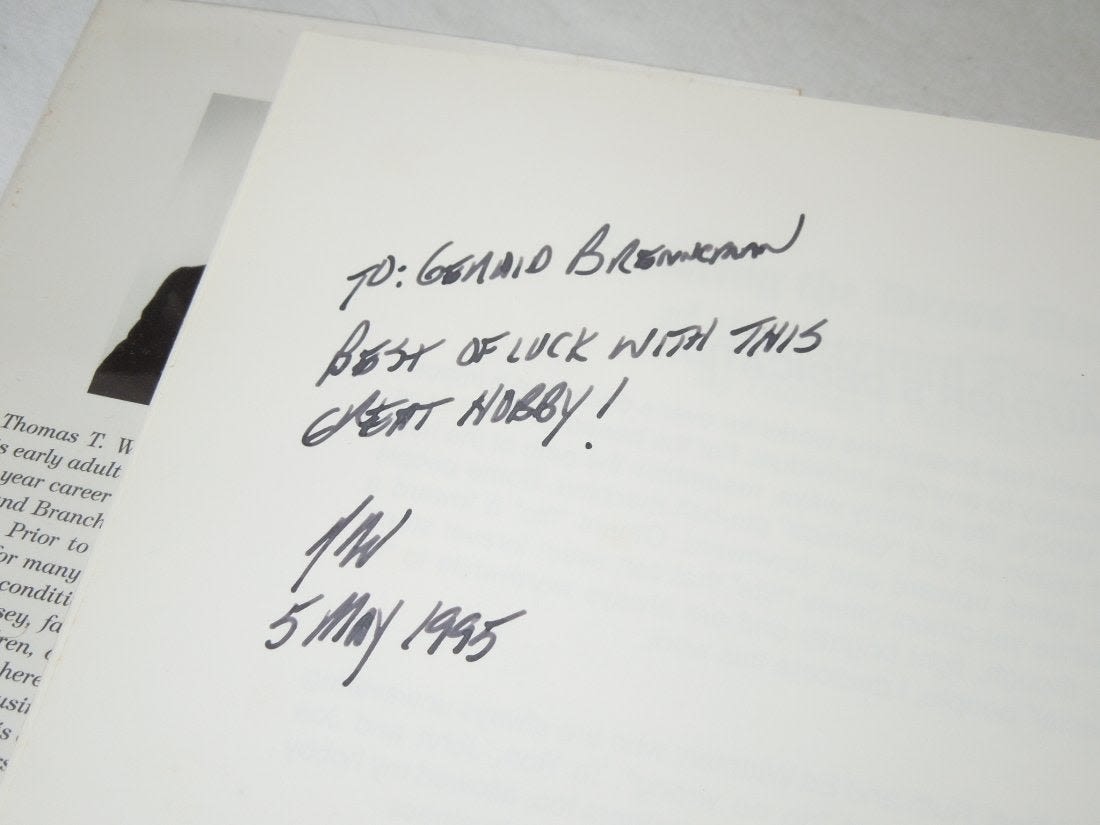 TO: GERALD BRENNEMAN
BEST OF LUCK WITH THIS
GREAT HOBBY!
TTW
5 MAY 1995
Thomas T. W
s early adult
year career
nd Branch
Prior to
or many
conditi
sey, fa
ren,
here
usin
is
rs